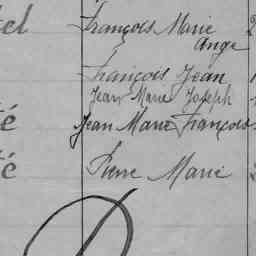 François Marie
Ange
François Jean
Jean Marie Joseph
Jean Marie François
Pierre Marie